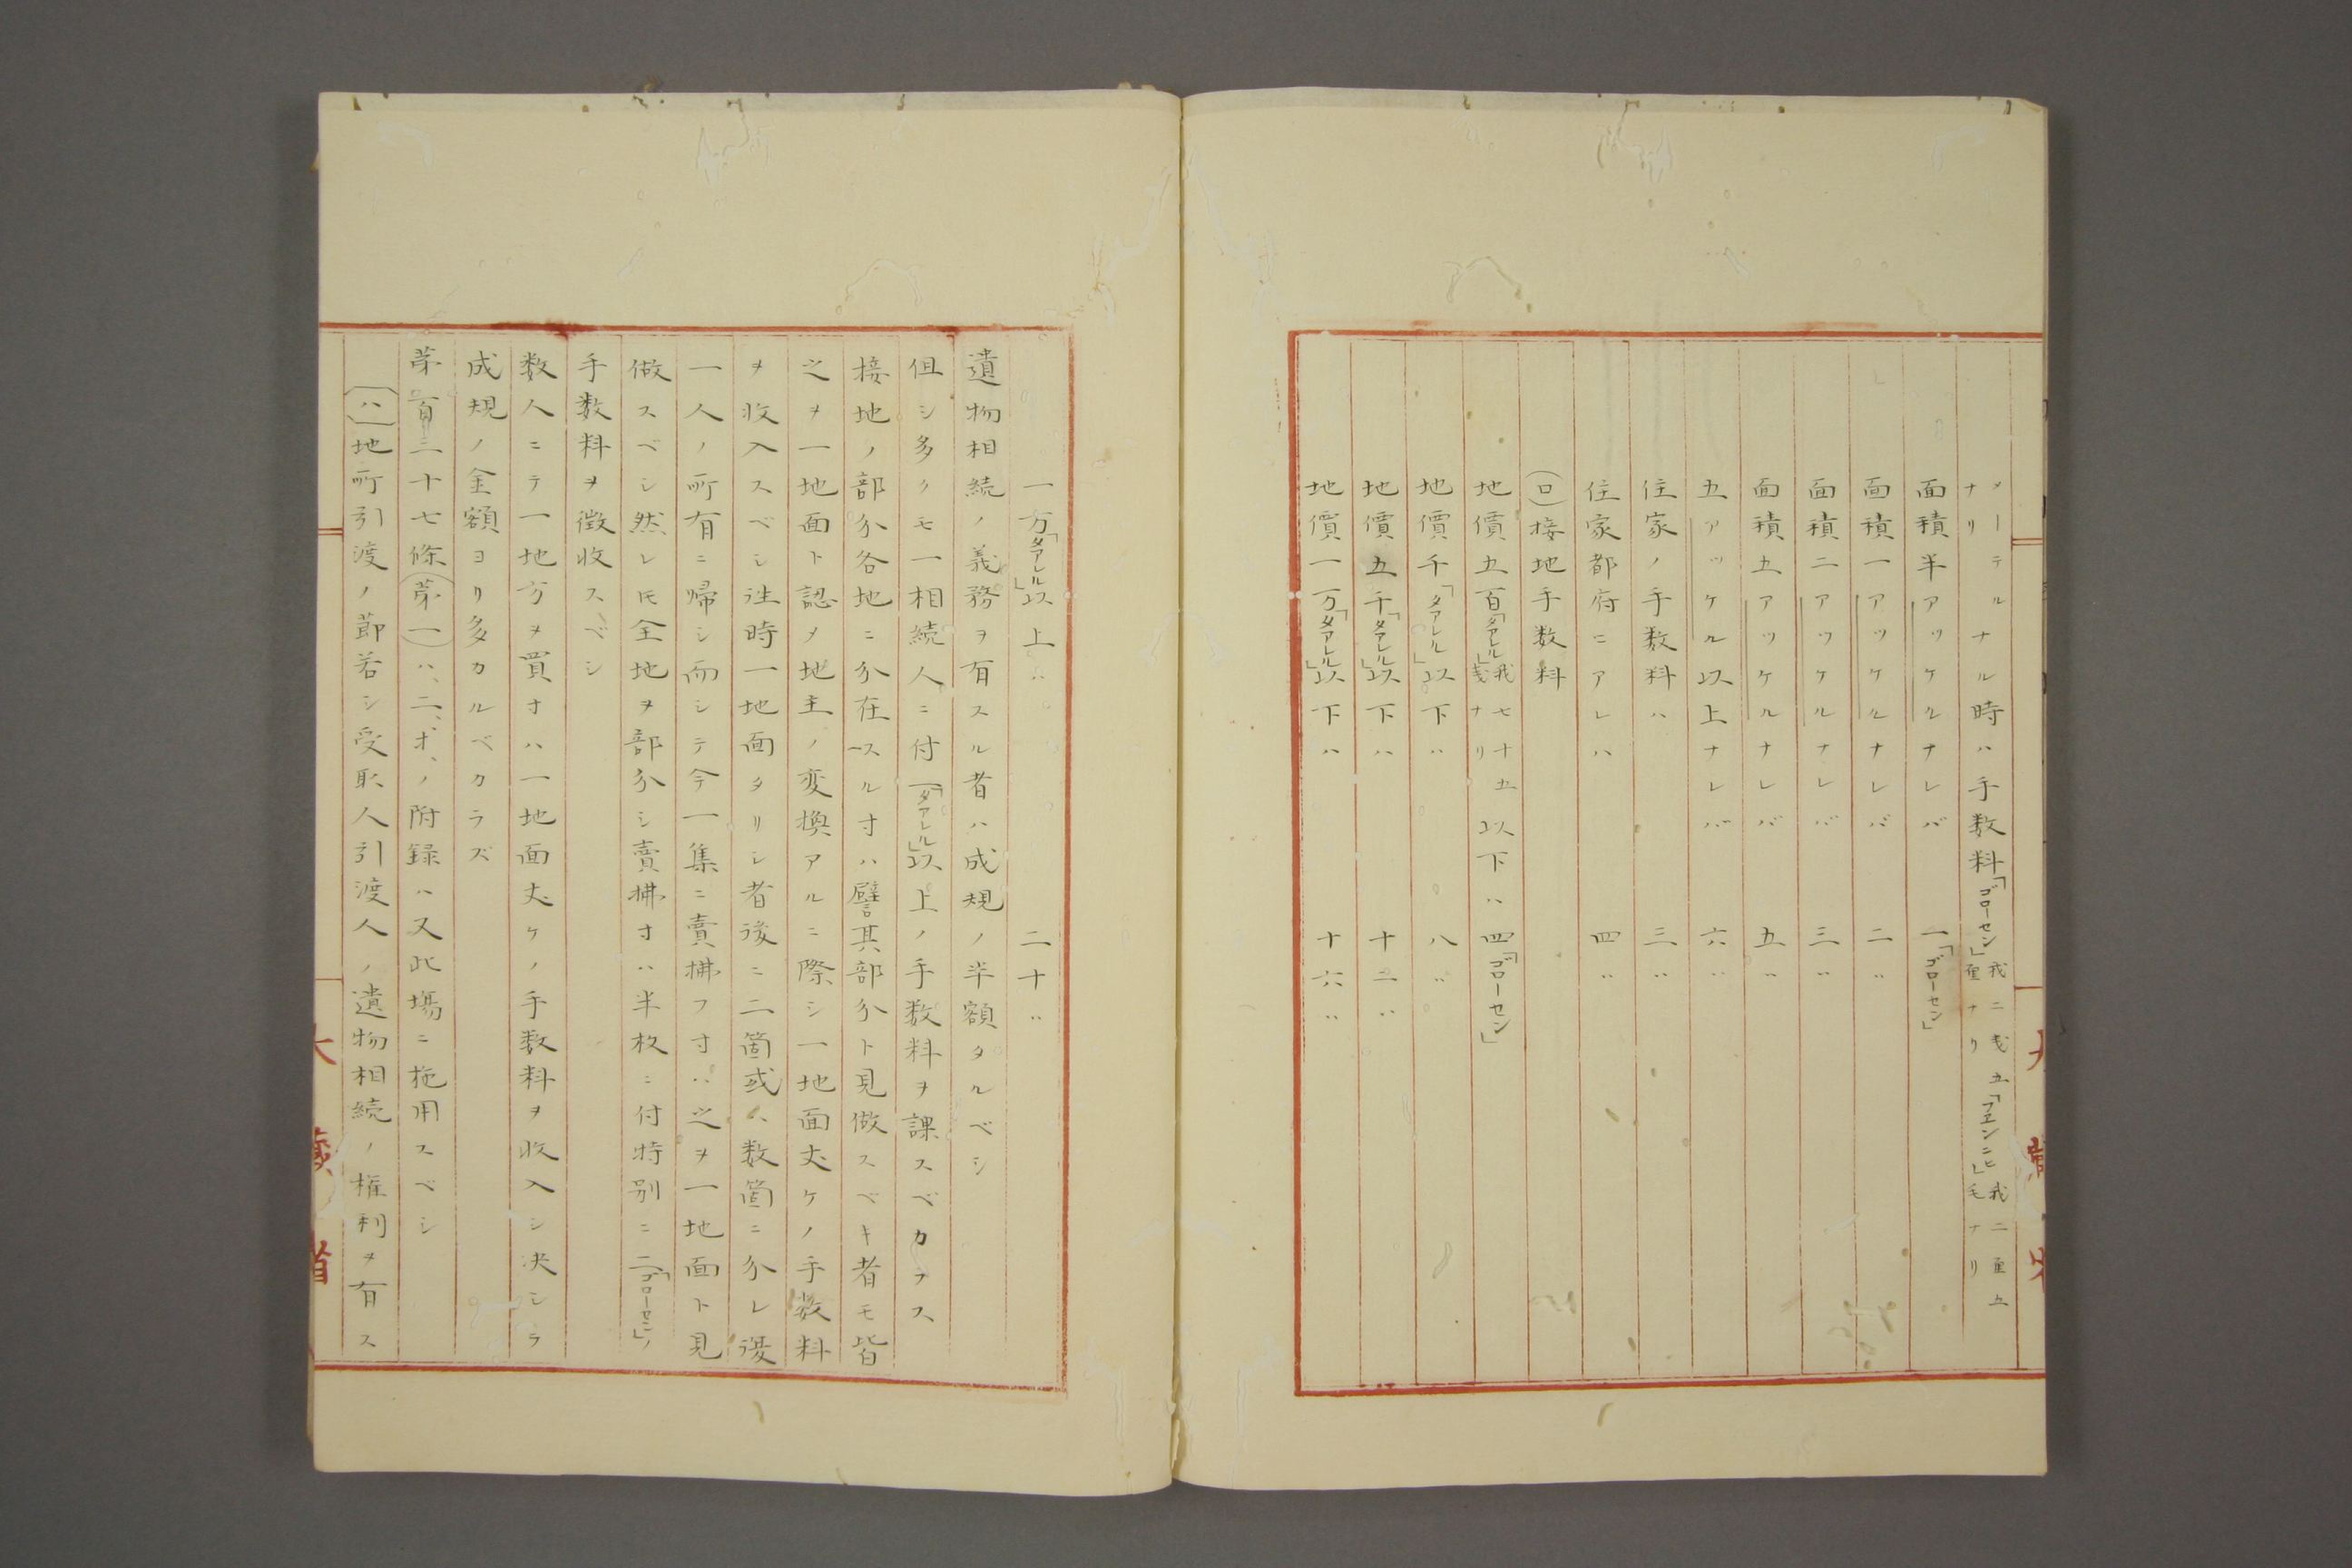 メーテルナル時ハ手数料「ゴローセン」我二戔五厘ナリ「フェンニヒ」我二厘五毛ナリナリ
面積半アッケルナレバ 一「ゴローセン」
面積一アッケルナレバ 二〃
面積二アッケルナレバ 三〃
面積五アッケルナレバ 五〃
五アッケル以上ナレバ 六〃
住家ノ手数料ハ 三〃
住家都府ニアレハ 四〃
(ロ)接地手数料
地價五百「タアレル」我七十五戔ナリ以下ハ 四「ゴローセン」
地價千「タアレル」以下ハ 八〃
地價五千「タアレル」以下ハ 十二〃
地價一万「タアレル」以下ハ 十六〃
一万「タアレル」以上ハ 二十〃
遺物相続ノ義務ヲ有スル者ハ成規ノ半額タルベシ
但シ多クモ一相続人ニ付一「タアレル」以上ノ手数料ヲ課スベカラス
接地ノ部分各地ニ分在スル寸ハ譬其部分ト見做スベキ者モ皆
之ヲ一地面ト認メ地主ノ変換アルニ際シ一地面丈ケノ手数料
ヲ收入スベシ往時一地面タリシ者後ニ二箇或ハ数箇ニ分レ復
一人ノ所有ニ帰シ而シテ今一集ニ賣拂フ寸ハ之ヲ一地面ト見
做スベシ然レ𪜈全地ヲ部分シ賣拂寸ハ半枚ニ付特別ニ二「ゴローセン」ノ
手数料ヲ徴收スベシ
数人ニテ一地方ヲ買寸ハ一地面丈ケノ手数料ヲ收入シ决シラ
成規ノ金額ヨリ多カルベカラズ
苐百三十七條(苐一)ハ、二、オ、ノ附録ハ又此塲ニ拖用スベシ
(ハ)地所引渡ノ節若シ受取人引渡人ノ遺物相続ノ権利ヲ有ス
大藏省